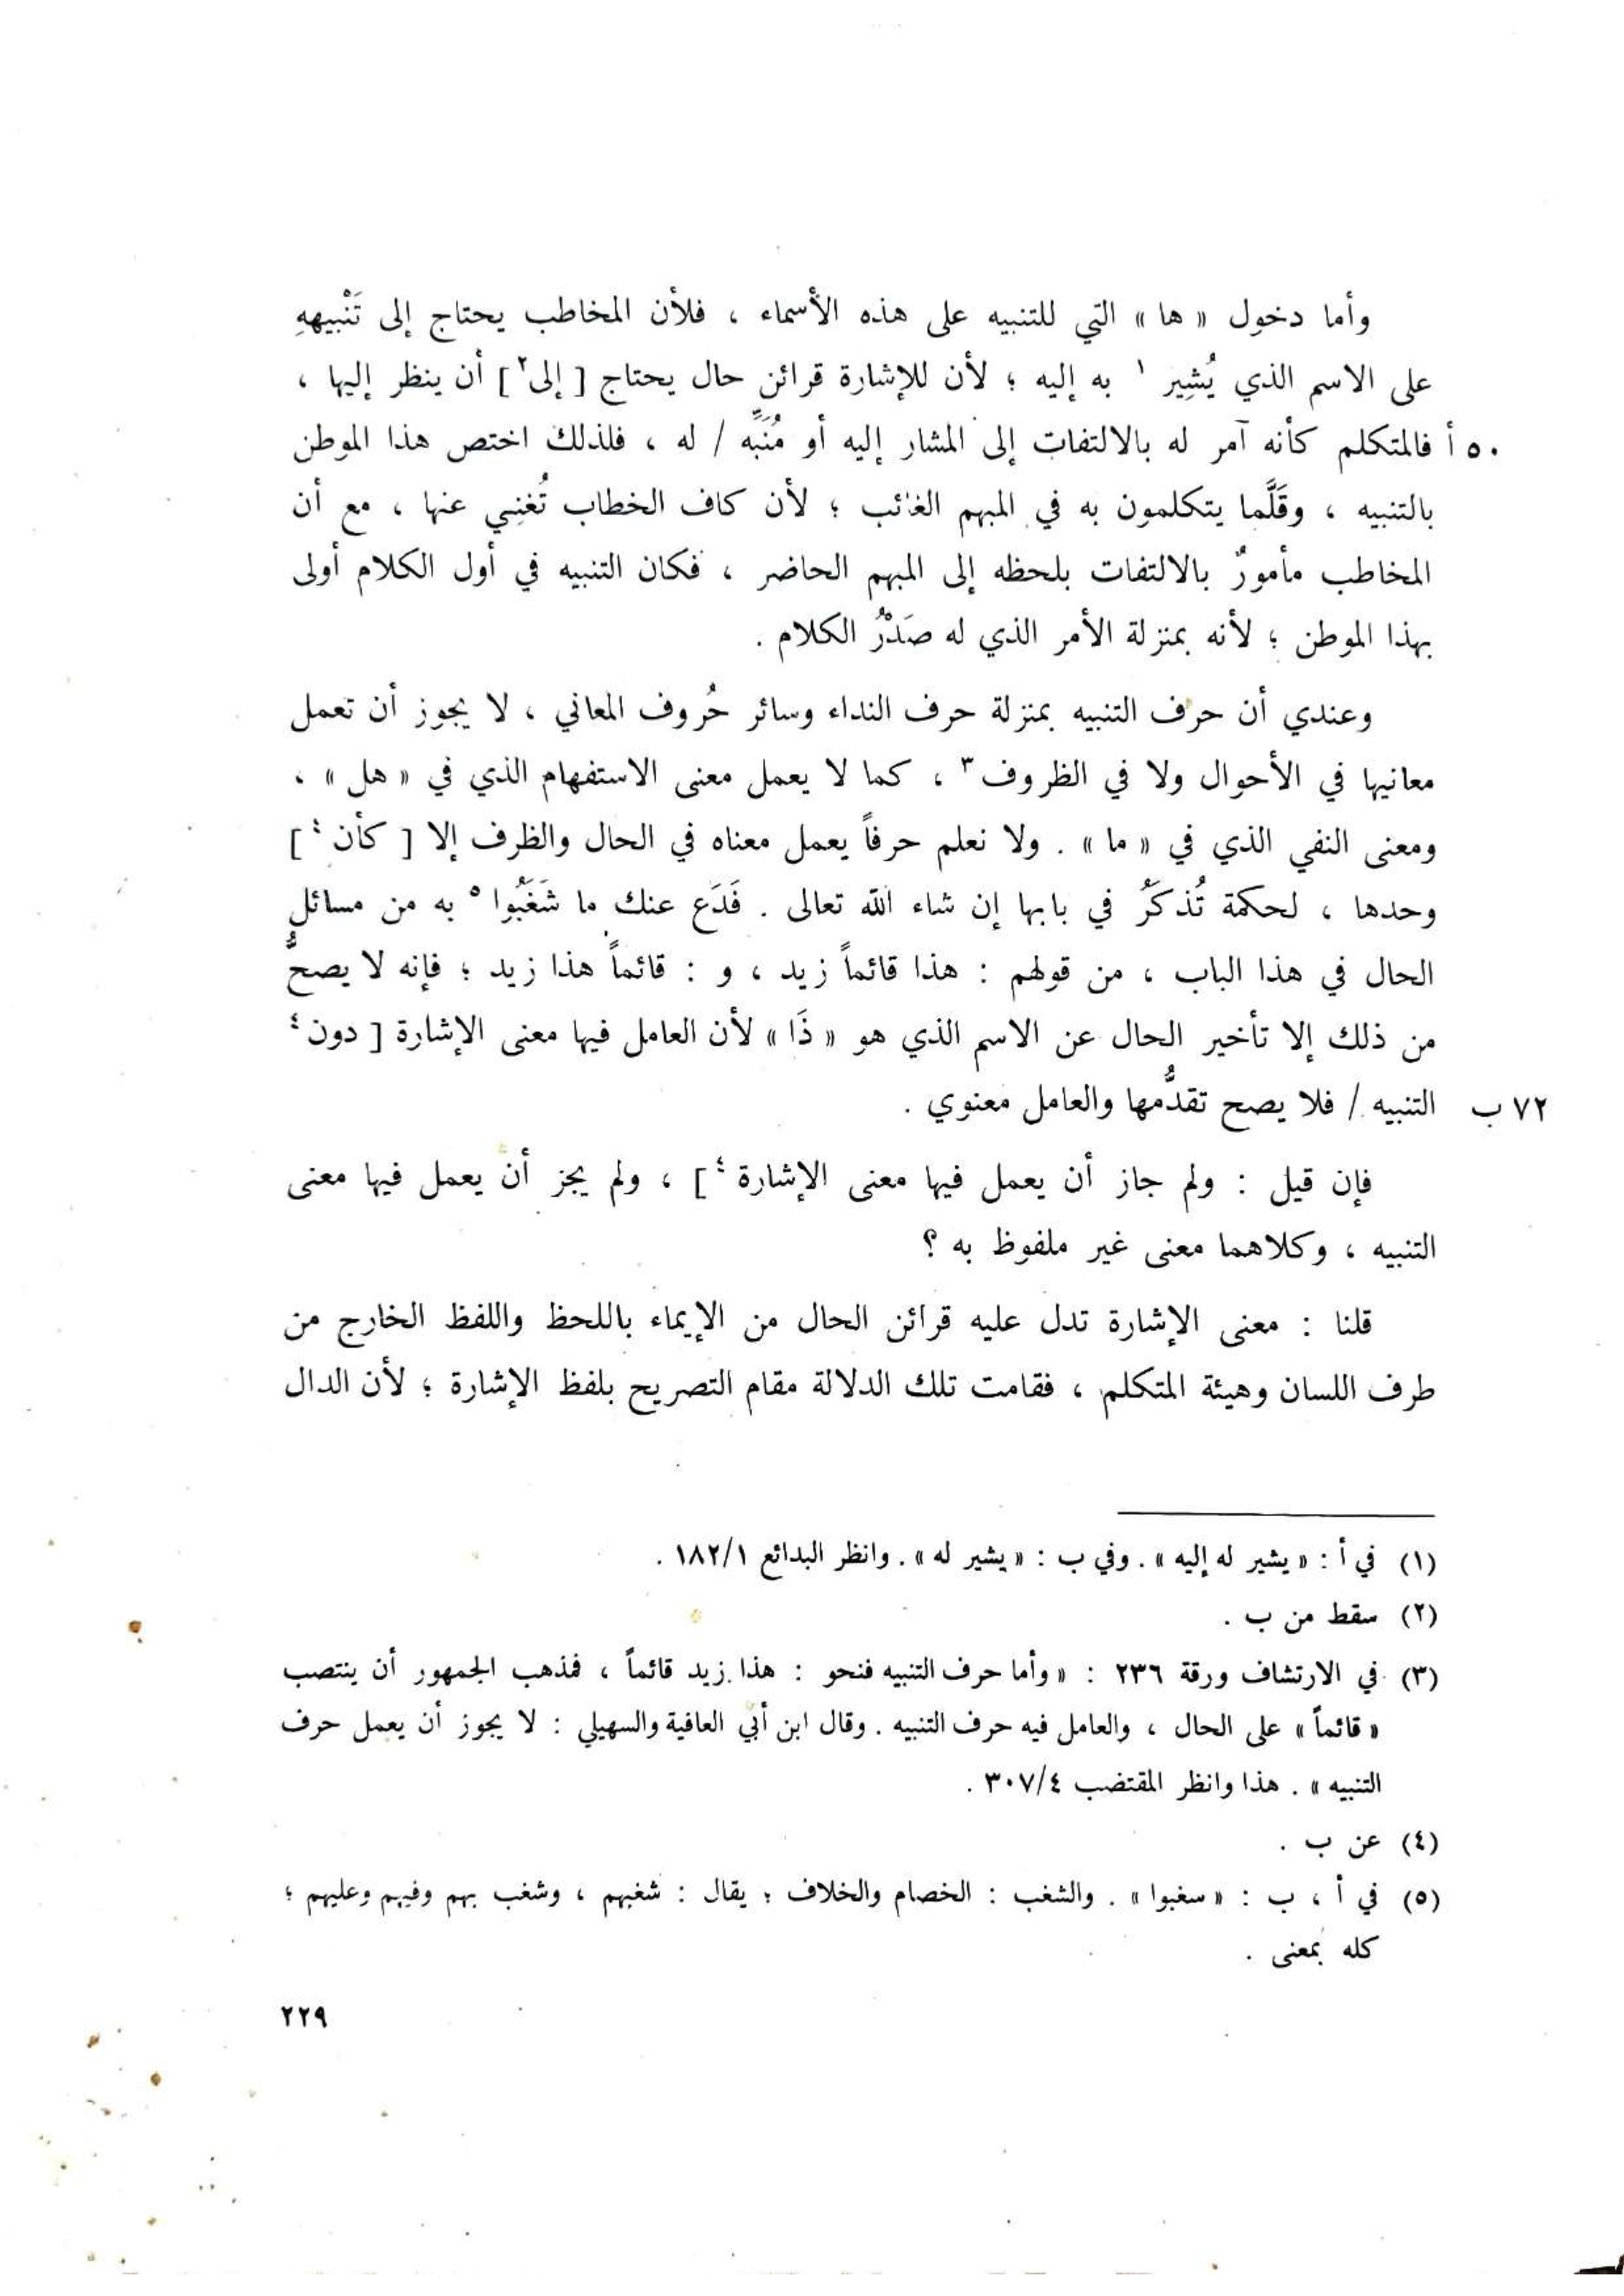 وأما دخول « ها » التي للتنبيه على هذه الأسماء ، فلأن المخاطب يحتاج إلى تَنْبيههِ
على الاسم الذي يُشِير ١ به إليه ؛ لأن للإشارة قرائن حال يحتاج [ إلى ٢ ] أن ينظر إليها ،
٥٠ أ فالمتكلم كأنه آمر له بالالتفات إلى المشار إليه أو مُنَبِّه / له ، فلذلك اختص هذا الموطن
بالتنبيه ، وقَلَّما يتكلمون به في المبهم الغائب ؛ لأن كاف الخطاب تُغنِي عنها ، مع أن
المخاطب مأمورٌ بالالتفات بلحظه إلى المبهم الحاضر ، فكان التنبيه في أول الكلام أولى
بهذا الموطن ؛ لأنه بمنزلة الأمر الذي له صَدْرُ الكلام .
وعندي أن حرف التنبيه بمنزلة حرف النداء وسائر حُروف المعاني ، لا يجوز أن تعمل
معانيها في الأحوال ولا في الظروف ٣ ، كما لا يعمل معنى الاستفهام الذي في « هل » ،
ومعنى النفي الذي في « ما » . ولا نعلم حرفاً يعمل معناه في الحال والظرف إلا [ كأن ٤ ]
وحدها ، لحكمة تُذكَرُ في بابها إن شاء الله تعالى . فَدَع عنك ما شَغَبُوا ٥ به من مسائل
الحال في هذا الباب ، من قولهم : هذا قائماً زيد ، و : قائماً هذا زيد ؛ فإنه لا يصحُّ
من ذلك إلا تأخير الحال عن الاسم الذي هو « ذَا » لأن العامل فيها معنى الإشارة [ دون ٤
٧٢ ب التنبيه / فلا يصح تقدُّمها والعامل معنوي .
فإن قيل : ولم جاز أن يعمل فيها معنى الإشارة ٤ ] ، ولم يجز أن يعمل فيها معنى
التنبيه ، وكلاهما معنى غير ملفوظ به ؟
قلنا : معنى الإشارة تدل عليه قرائن الحال من الإيماء باللحظ واللفظ الخارج من
طرف اللسان وهيئة المتكلم ، فقامت تلك الدلالة مقام التصريح بلفظ الإشارة ؛ لأن الدال
(١) في أ : « يشير له إليه » . وفي ب : « يشير له » . وانظر البدائع ١٨٢/١ .
(٢) سقط من ب .
(٣) في الارتشاف ورقة ٢٣٦ : « وأما حرف التنبيه فنحو : هذا زيد قائماً ، فمذهب الجمهور أن ينتصب
« قائماً » على الحال ، والعامل فيه حرف التنبيه . وقال ابن أبي العافية والسهيلي : لا يجوز أن يعمل حرف
التنبيه » . هذا وانظر المقتضب ٣٠٧/٤ .
(٤) عن ب .
(٥) في أ ، ب : « سغبوا » . والشغب : الخصام والخلاف ؛ يقال : شغبهم ، وشغب بهم وفيهم وعليهم ؛
كله بمعنى .
٢٢٩